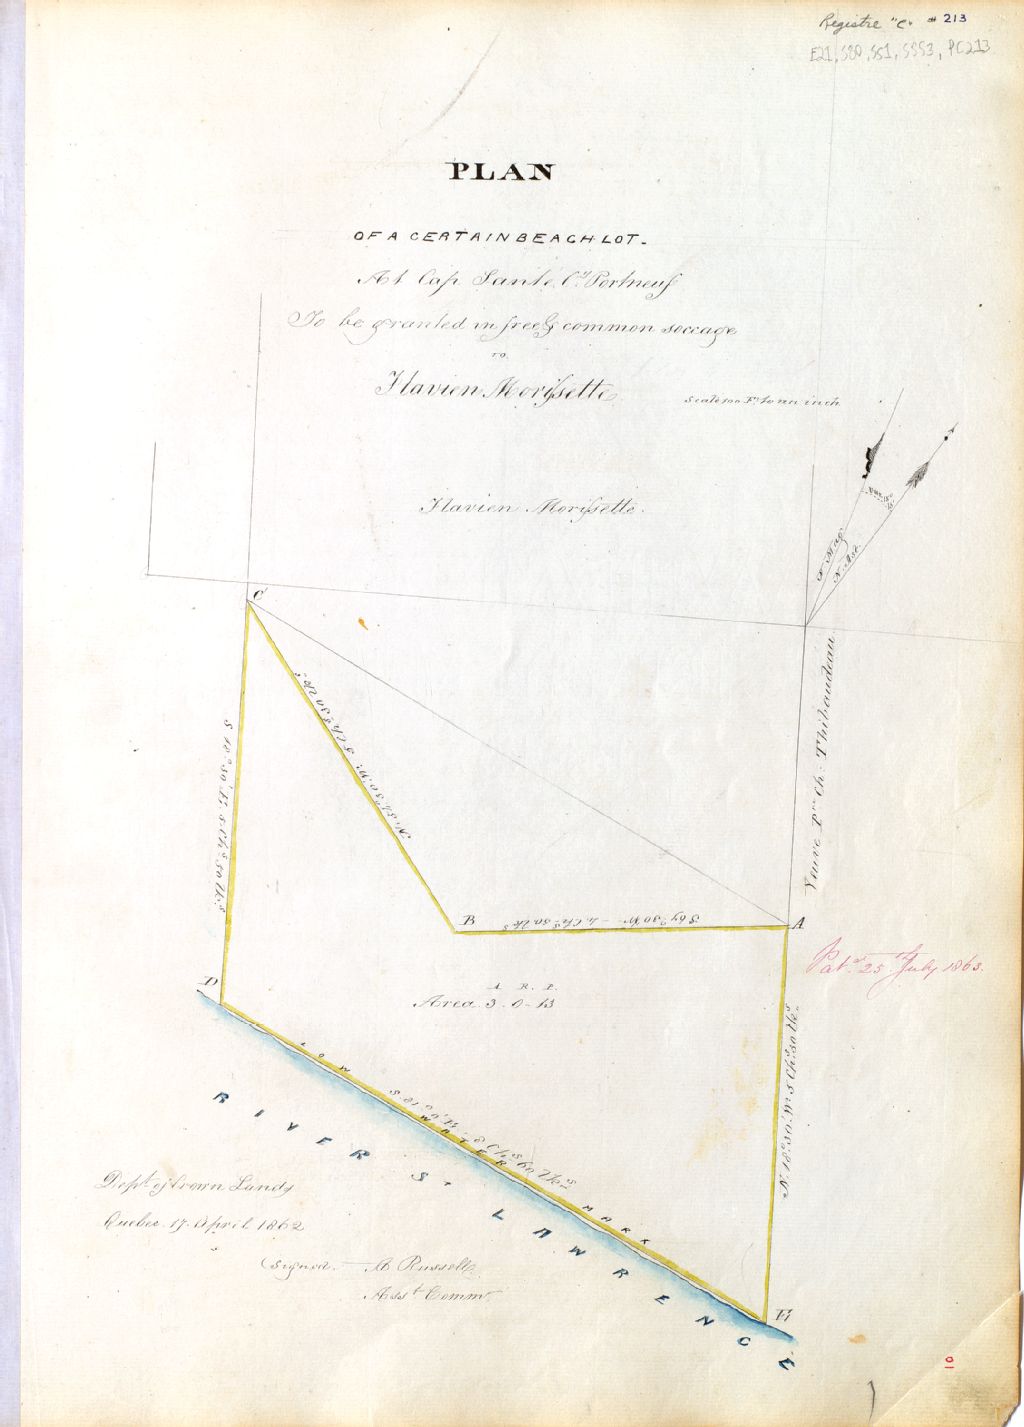 Registre "C" # 213
E21, S80, SS1, SSS3, PC213
PLAN
OF A CERTAIN BEACH LOT.
At Cap Santé, Cy. Portneuf
To be granted in free & common soccage
TO
Flavien Morissette
Scale 100 Ft. to an inch
Flavien Morissette.
N. Mag.
N. Ast.
C
Veuve Pre Ch: Thibaudeau
S 18° 30' E. 5 Chs. 50 lks.
5 Chs. 30 lks.
B
S 69° 30' W - 4 Chs. 50 lks
A
Patd. 25th July 1863.
D
A. R. P.
Area 3 - 0 - 13
N. 18° 30' W. 5 Chs. 50 lks.
LOW WATER MARK
8 Chs 60 lks
RIVER ST. LAWRENCE
E
Dept. of Crown Lands
Quebec 17. April 1862
(Signed. A Russell,
Asst Commr.